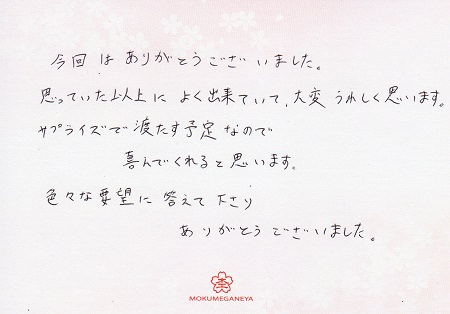 今回はありがとうございました。
思っていた以上によく出来ていて、大変うれしく思います。
サプライズで渡たす予定なので
喜んでくれると思います。
色々な要望に答えて下さり
ありがとうございました。
MOKUMEGANEYA